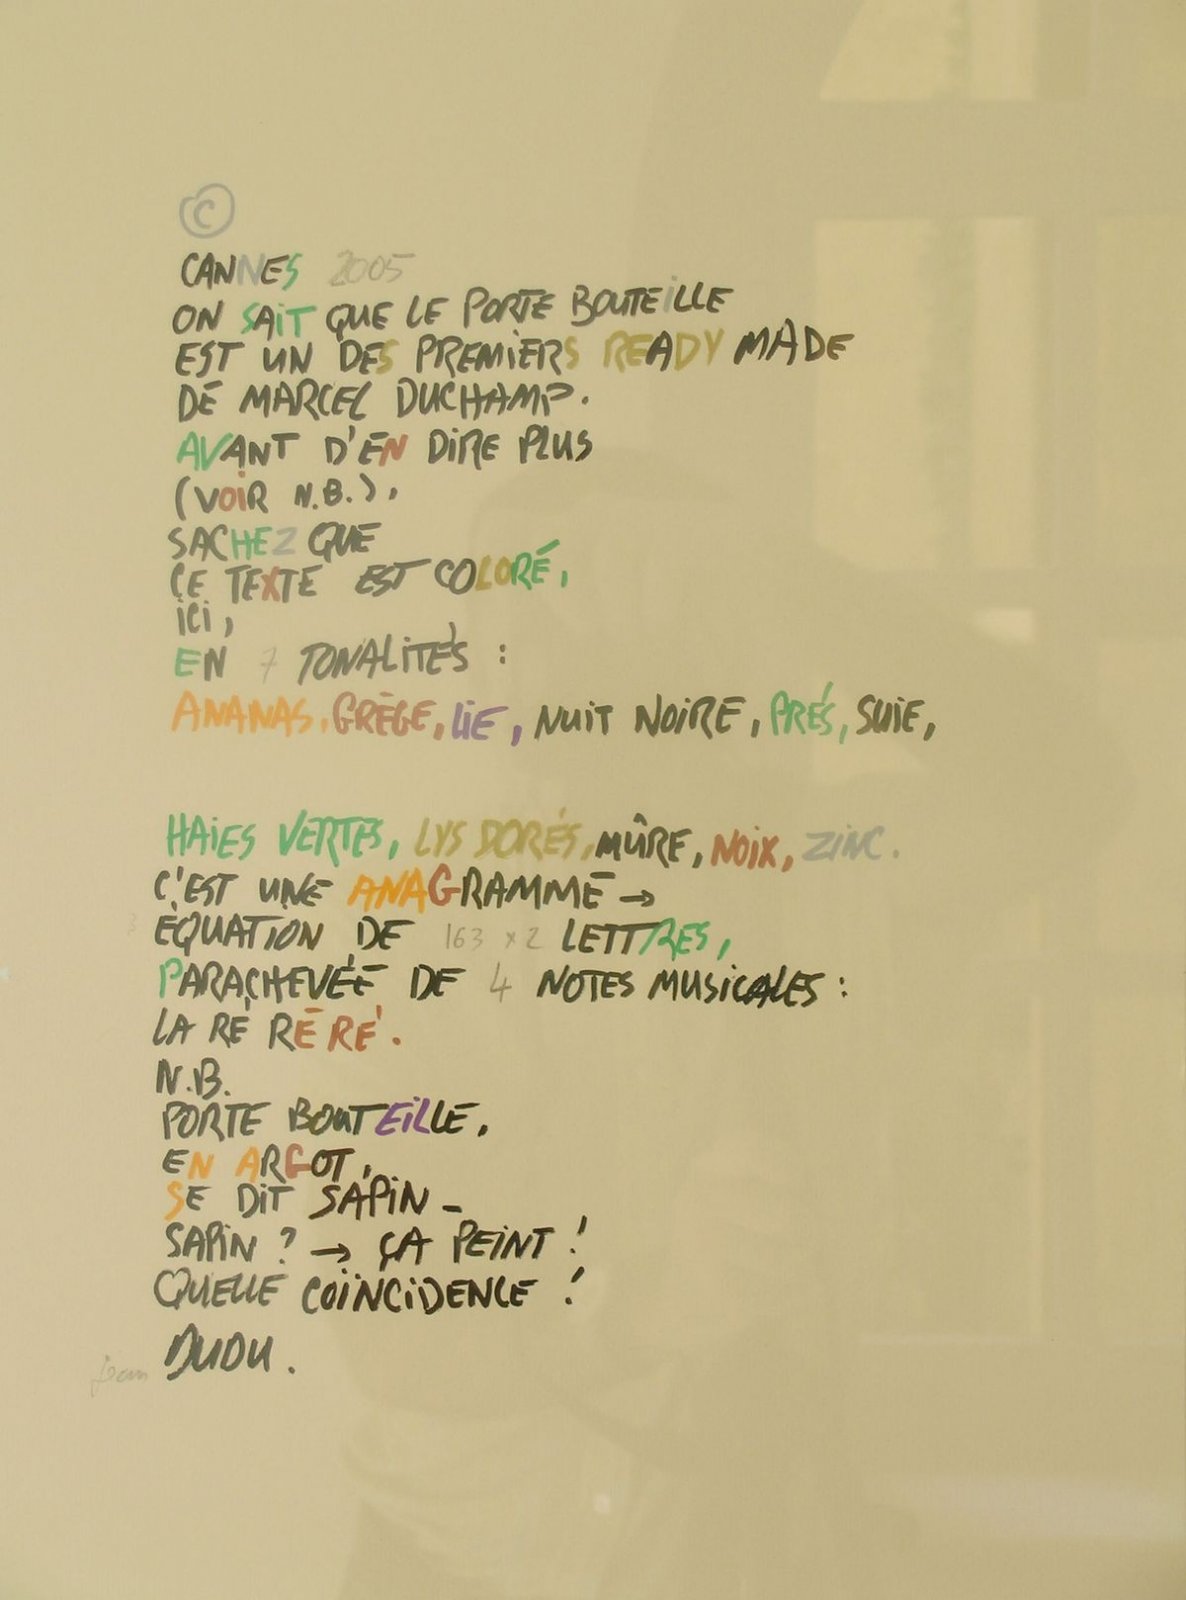 ©
CANNES 2005
ON SAIT QUE LE PORTE BOUTEILLE
EST UN DES PREMIERS READY MADE
DE MARCEL DUCHAMP.
AVANT D'EN DIRE PLUS
(VOIR N.B.),
SACHEZ QUE
CE TEXTE EST COLORÉ,
ICI,
EN 7 TONALITÉS :
ANANAS, GRÈGE, LIE, NUIT NOIRE, PRÉS, SUIE,
HAIES VERTES, LYS DORÉS, MÛRE, NOIX, ZINC.
C'EST UNE ANAGRAMME →
ÉQUATION DE 163 x 2 LETTRES,
PARACHEVÉE DE 4 NOTES MUSICALES :
LA RÉ RÉ RÉ.
N.B.
PORTE BOUTEILLE,
EN ARGOT,
SE DIT SAPIN -
SAPIN ? → ÇA PEINT !
QUELLE COÏNCIDENCE !
jean DUDU.